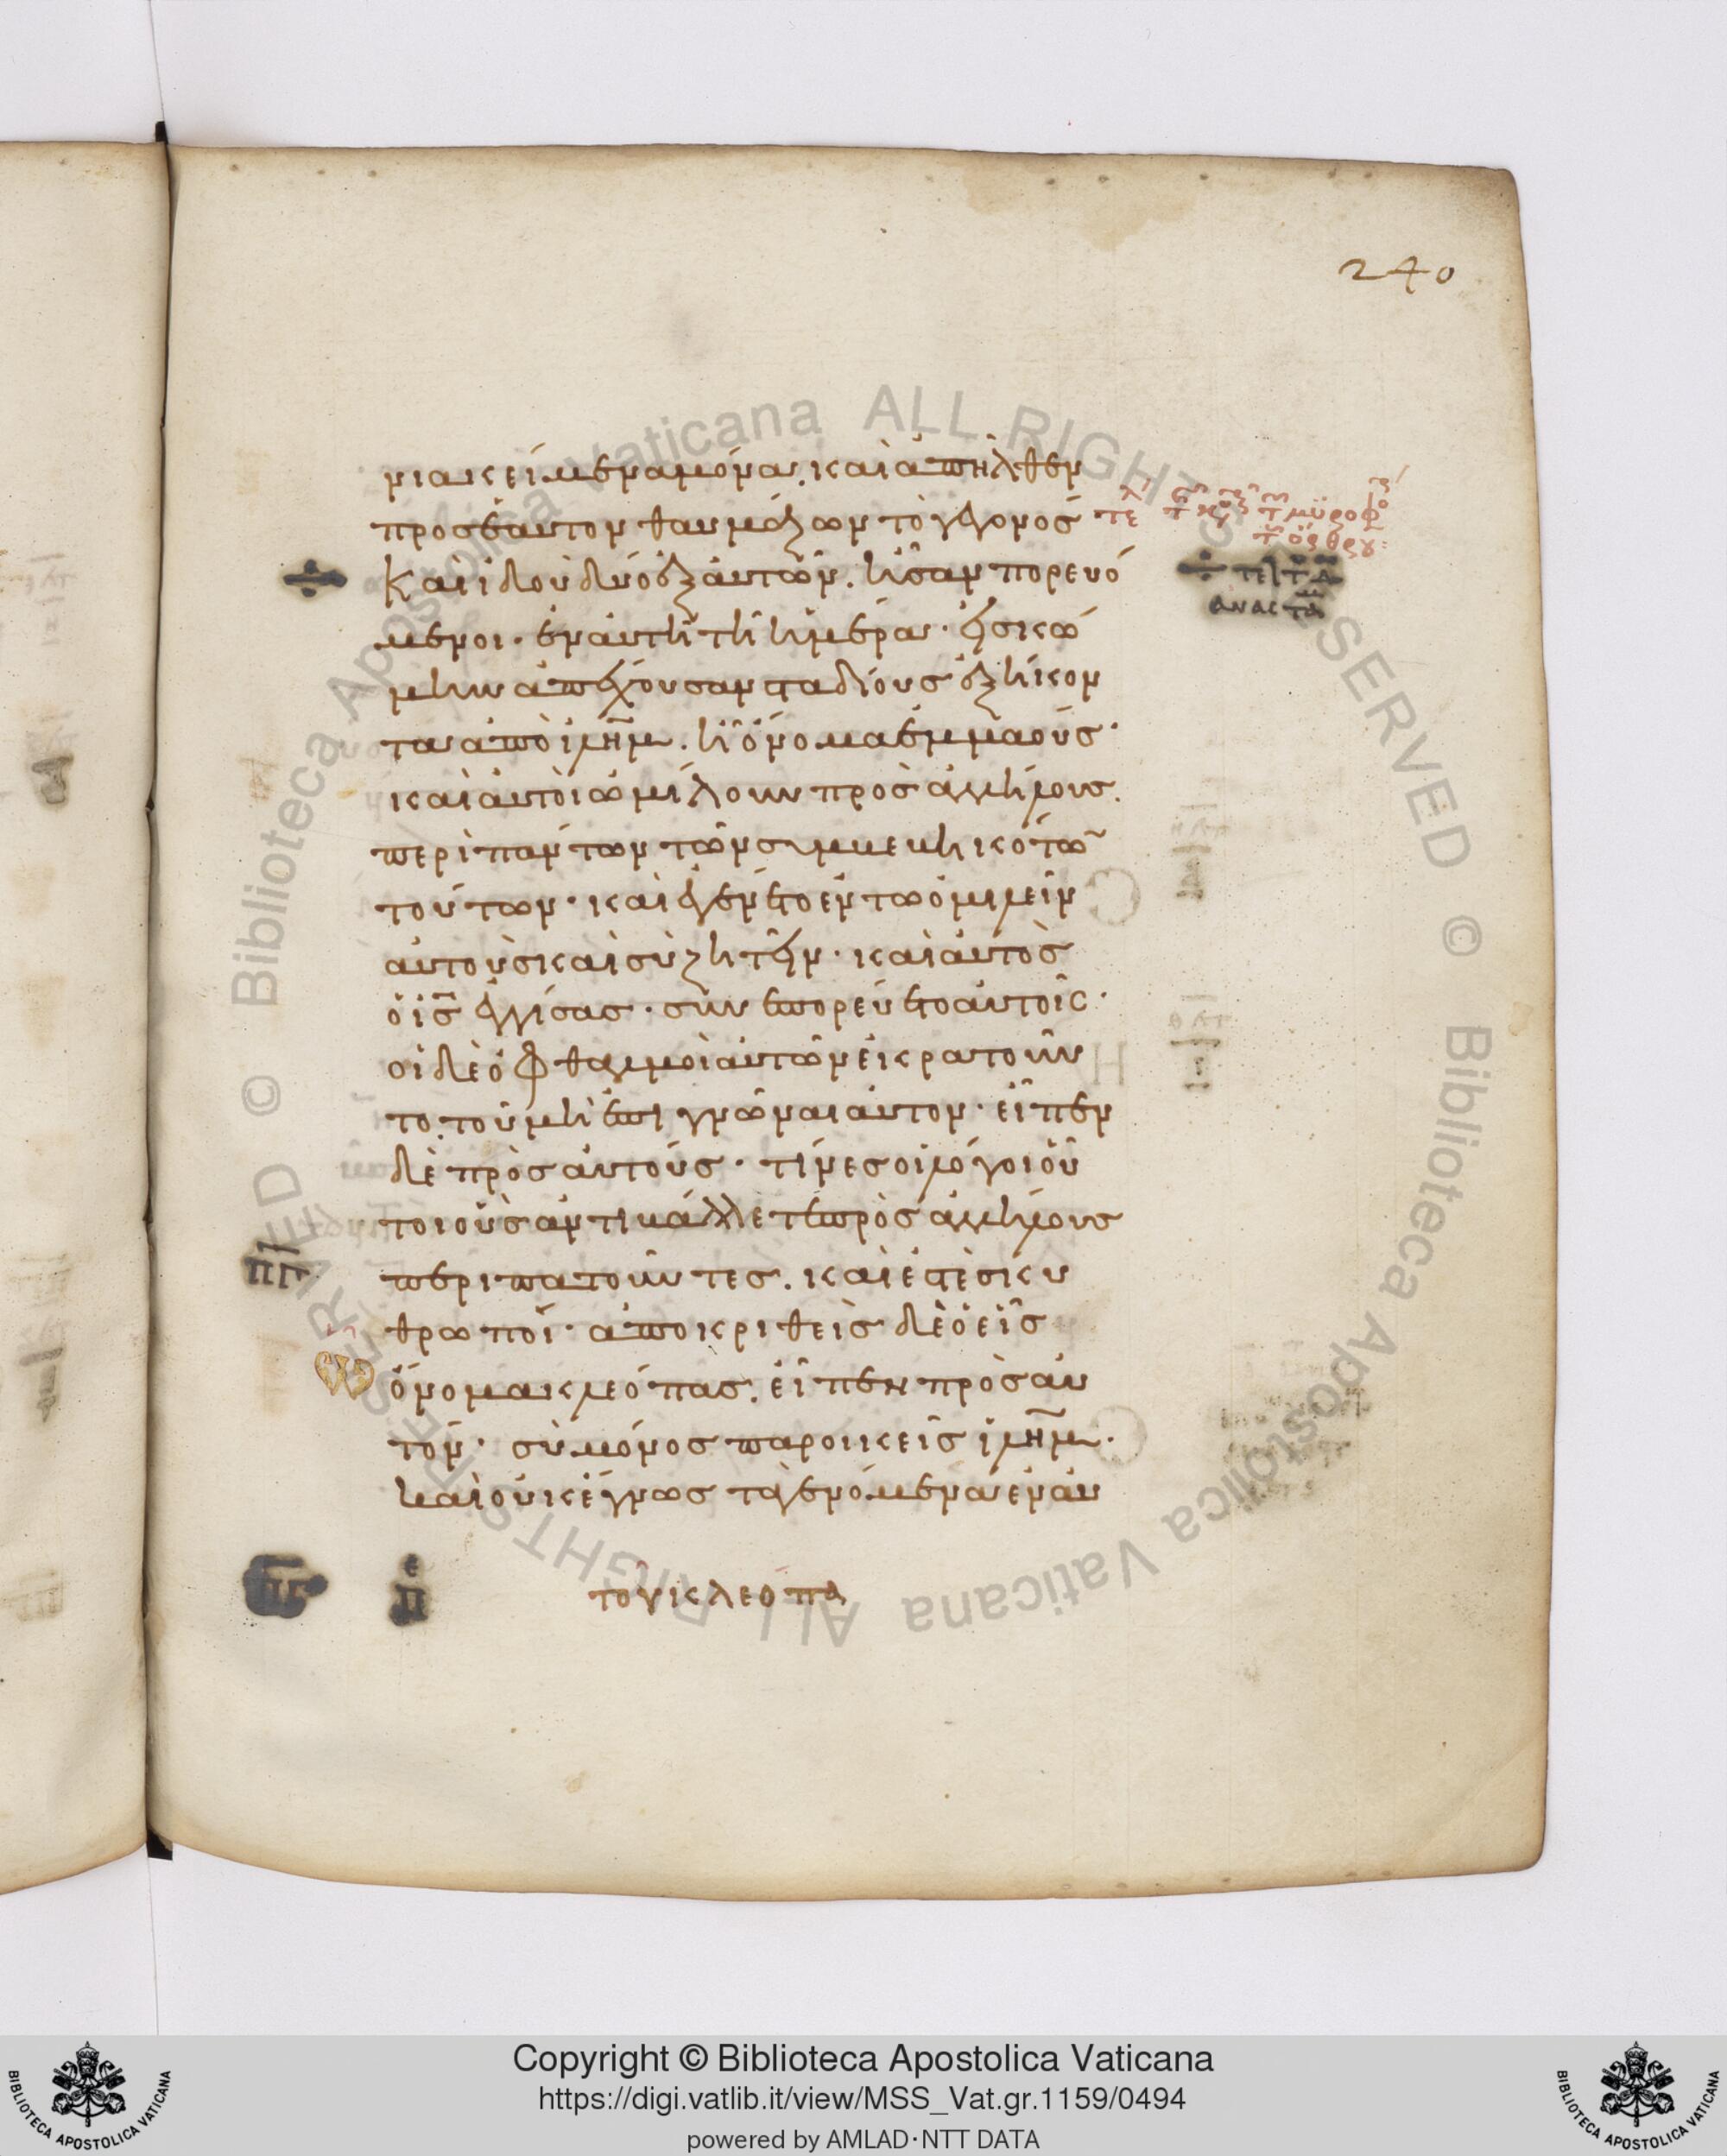 240
νια κείμενα μόνα. καὶ ἀπῆλθεν
προσἑαυτον θαυμάζων τὸ γεγονοσ́
τε
Καὶ ἰδοὺ δυόἐξ ἀυτῶν. ἦσαν πορευό
μενοι· ἐν ἀυτῆ τῆ ἡμέρα· ἐισ κώ
μην ἀπέχουσαν σταδίουσ ἐξήκον
τα ἀπὸ ἰλῆμ. ἧ ὄνομα ἐμμαούσ·
καὶ ἀυτὸι ὡμίλουν πρὸσ ἀλλήλουσ.
περὶ πάντων τῶν συμβεβηκότω
τούτων· καὶ ἐγένετο ἐν τῶ ὁμιλεῖν
ἀυτοὺσ καὶ συζητεῖν· καὶ ἀυτὸσ
ὁ ἰσ ἐγγίσασ· συνεπορέυετο ἀυτοῖσ·
οἱ δὲ ὀφθαλμοὶ ἀυτῶν ἐκρατοῦν
το. τοῦ μὴ ἐπιγνῶναι ἀυτον· εἶπεν
δὲ πρὸσ ἀυτούσ· τίνεσ οἱ λόγοι ὁῦ
τοι οὓσ ἀντιβάλλετε πρὸσ ἀλλήλουσ
περιπατοῦντεσ. καὶ ἐστὲ σκυ
θρωποί· ἀποκριθεὶσ δὲ ὁ εἷσ
ὄνομα κλεόπασ. εἶπεν πρὸσ ἀυ
τόν· σὺ μόνοσ παροικεῖσ ἰλῆμ.
καὶ οὐκ ἔγνωσ τὰ γενόμενα ἐν ἀυ
του κλεοπα
Copyright © Biblioteca Apostolica Vaticana
https://digi.vatlib.it/view/MSS_Vat.gr.1159/0494
powered by AMLAD·NTT DATA